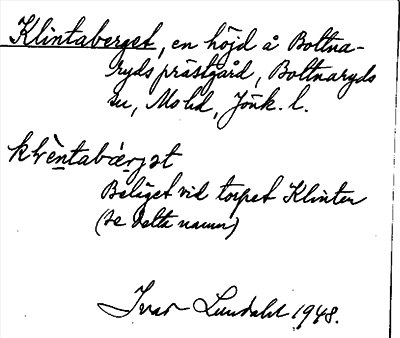 Klintaberget, en höjd å Bottna-
ryds prästgård, Bottnaryds
sn, Mo hd, Jönk. l.
klèntabærjət
Beläget vid torpet Klinten
(se detta namn)
Ivar Lundahl 1948.